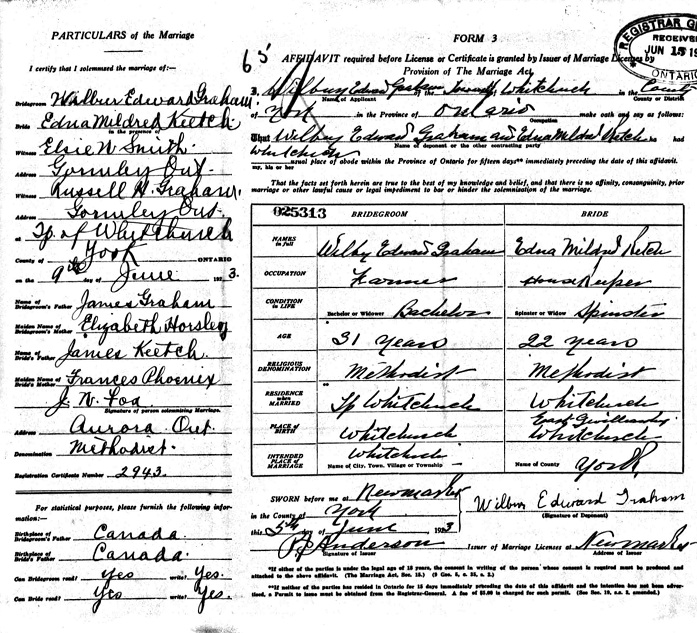 PARTICULARS of the Marriage
I certify that I solemnized the marriage of:—
Bridegroom Wilbur Edward Graham
Bride Edna Mildred Keetch
in the presence of
Witness Elsie W Smith
Address Gormley Ont.
Witness Russell H. Graham
Address Gormley Ont.
at Tp. of Whitchurch
County of York ONTARIO
on the 9th day of June 1923.
Name of Bridegroom's Father James Graham
Maiden Name of Bridegroom's Mother Elizabeth Horsley
Name of Bride's Father James Keetch.
Maiden Name of Bride's Mother Frances Phoenix
J. N.
Signature of person solemnizing Marriage.
Address Aurora Ont.
Denomination Methodist.
Registration Certificate Number 2943.
For statistical purposes, please furnish the following information:—
Birthplace of Bridegroom's Father Canada.
Birthplace of Bride's Father Canada.
Can Bridegroom read? yes write? Yes.
Can Bride read? Yes write? Yes.
65
FORM 3
REGISTRAR GE
RECEIVED
JUN 15 19
ONTARIO
AFFIDAVIT required before License or Certificate is granted by Issuer of Marriage Licenses by
Provision of The Marriage Act.
I, Wilbur Edward Graham of the Township Whitchurch in the County
Name of Applicant County or District
of York in the Province of Ontario make oath and say as follows:
Occupation
That Wilbur Edward Graham and Edna Mildred Ketch he had
Name of deponent or the other contracting party
Whitchurch
my, his or her usual place of abode within the Province of Ontario for fifteen days** immediately preceding the date of this affidavit.
That the facts set forth herein are true to the best of my knowledge and belief, and that there is no affinity, consanguinity, prior marriage or other lawful cause or legal impediment to bar or hinder the solemnization of the marriage.
025313 BRIDEGROOM BRIDE
NAMES in full Wilby Edward Graham Edna Mildred Ketch
OCCUPATION Farmer Housekeeper
CONDITION IN LIFE Bachelor or Widower Bachelor Spinster or Widow Spinster
AGE 31 Years 22 Years
RELIGIOUS DENOMINATION Methodist Methodist
RESIDENCE when MARRIED Tp Whitchurch Whitchurch
PLACE OF BIRTH Whitchurch East Gwillimbury Whitchurch
INTENDED PLACE OF MARRIAGE Whitchurch York
Name of City, Town, Village or Township Name of County
SWORN before me at Newmarket
in the County of York
this 5th day of June 1923
P. J. Anderson
Signature of Issuer
Wilbur Edward Graham
(Signature of Deponent)
Issuer of Marriage Licenses at Newmarket
Address of Issuer
*If either of the parties is under the legal age of 18 years, the consent in writing of the person whose consent is required must be produced and attached to the above affidavit. (The Marriage Act, Sec. 15.)
**If neither of the parties has resided in Ontario for 15 days immediately preceding the date of this affidavit and the intention has not been advertised, a Permit to issue must be obtained from the Registrar-General. A fee of $5.00 is charged for such permit. (See Sec. 19, s.s. 2, amended.)